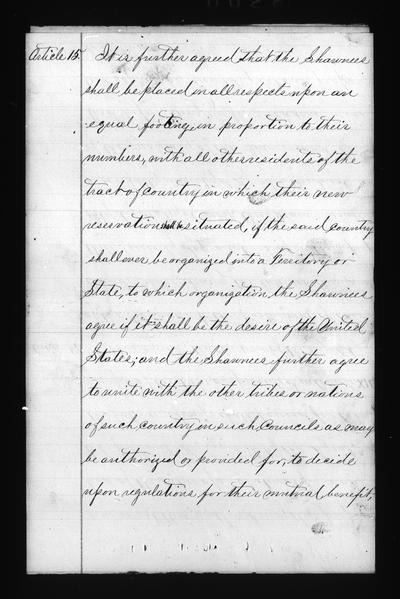 Article 15. It is further agreed that the Shawnees
shall be placed in all respects upon an
equal footing, in proportion to their
numbers, with all other residents of the
tract of country in which their new
reservation shall be situated, if the said country
shall ever be organized into a Territory or
State, to which organization the Shawnees
agree if it shall be the desire of the United
States; and the Shawnees further agree
to unite with the other tribes or nations
of such country in such Councils as may
be authorized or provided for, to decide
upon regulations for their mutual benefit,